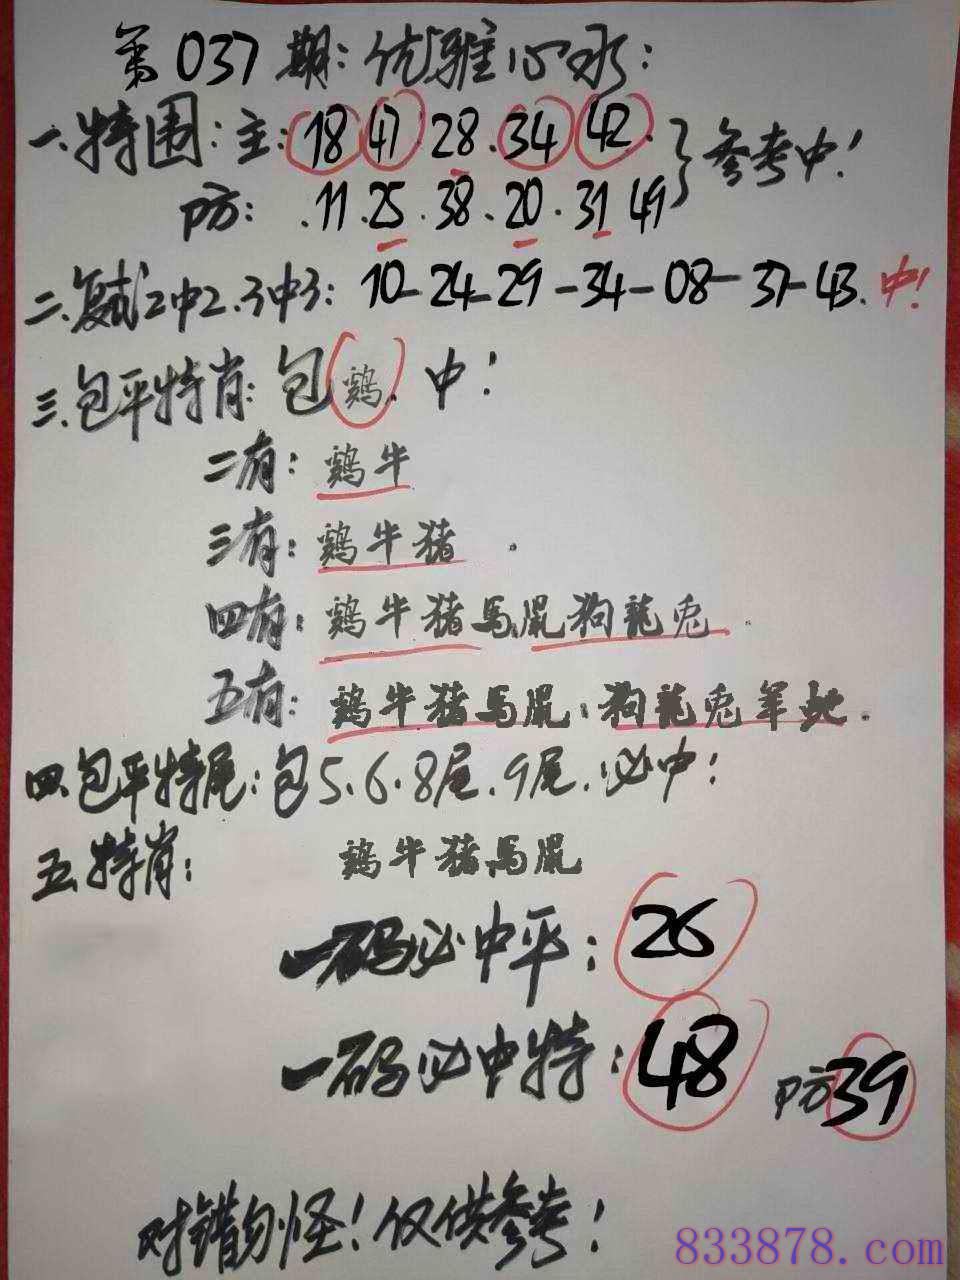 第037期:优雅心水:
一.特围:主:18 47 28.34 42.
防: .11.25.38.20.31 49
参考中!
二.复式2中2.3中3: 10-24-29-34-08-37-43.中!
三.包平特肖:包鷄.中!
二有:鷄牛
三有:鷄牛猪.
四有:鷄牛猪馬鼠狗龍兔.
五有:鷄牛猪馬鼠.狗龍兔羊蛇.
四.包平特尾:包5.6.8尾.9尾.必中!
五.特肖: 鷄牛猪馬鼠
一码必中平:26
一码必中特:48 防39
对错勿怪!仅供参考!
833878.com